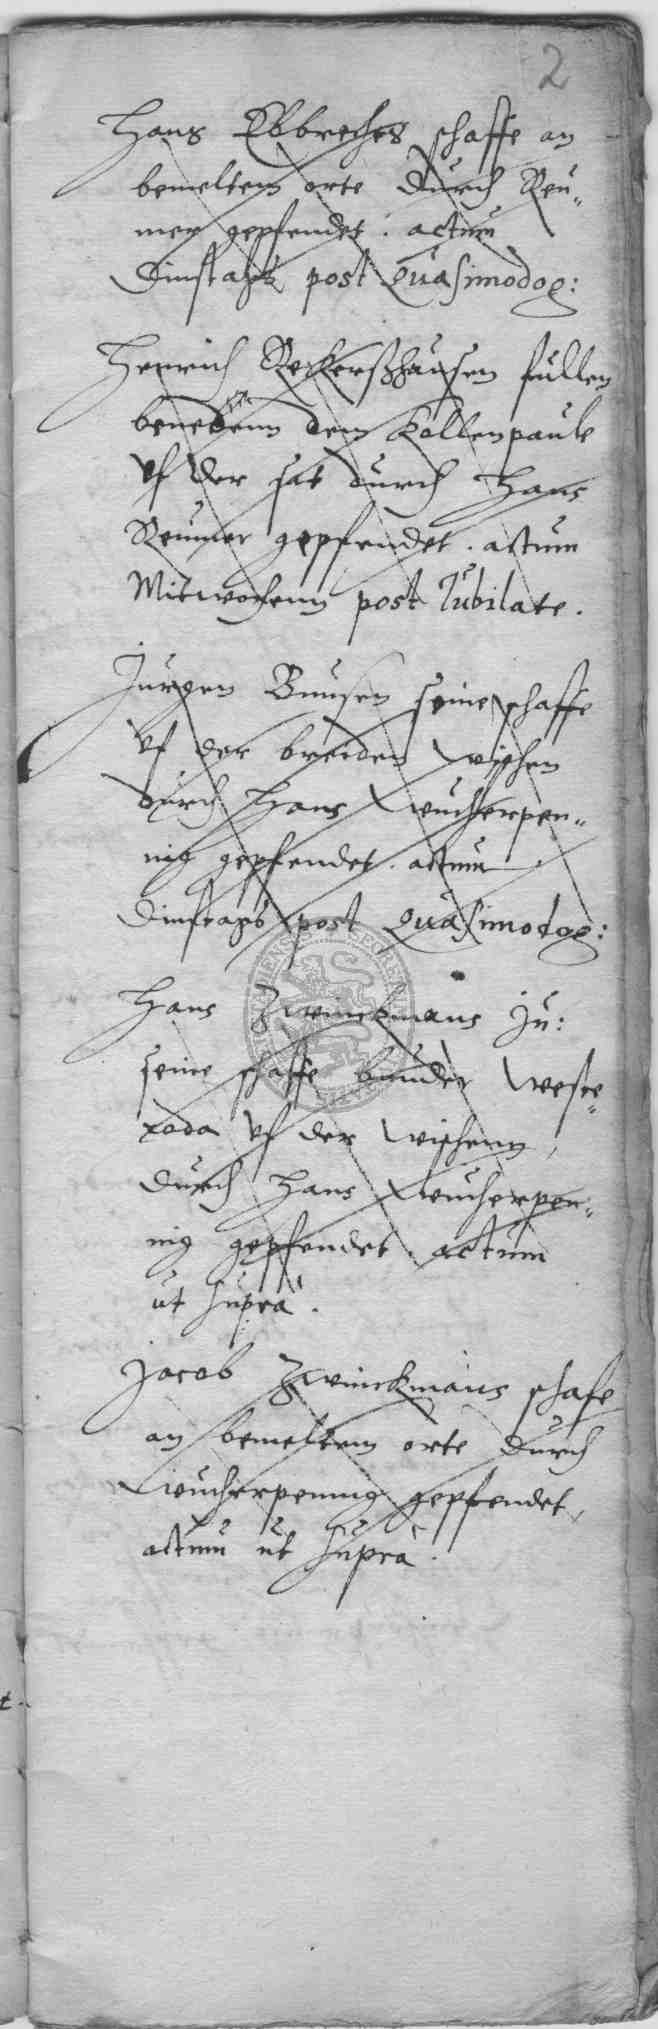 2
Hans Ebbrechts schaffe an
bemeltem orte durch Reu„
mer gepfendet. actum
Dinstags post Quasimodog:
Henrich Reckershausen fullen
benedenn dem Kollenpaule
uf der sat durch Hans
Reumer gepfendet. actum
Mitwochenn post Jubilate.
Jurgen Bunsen seine schaffe
uf der breiden wischen
durch Hans Wucherpen„
nig gepfendet. actum
Dinstags post Quasimodog:
Hans Zwinckmans Ju:
seine schaffe bunder Weste„
roda uf der wischenn,
durch Hans Wucherpen„
nig gepfendet. actum
ut supra.
Jacob Zwinckmans schafe
an bemeltem orte durch
Wucherpennig gepfendet,
actum ut supra.
SECRETV